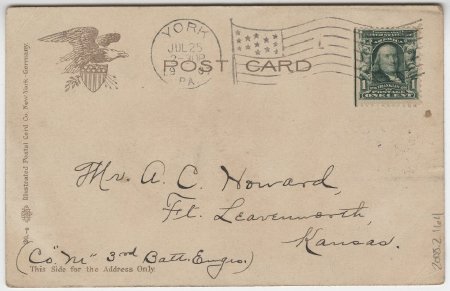 YORK
JUL 25
PA.
POST CARD
1 POSTAGE 1
ONE CENT
Mr. A. C. Howard,
Ft. Leavenworth,
Kansas.
(Co. "M" 3rd Batt. Engrs.)
This Side for the Address Only.
Illustrated Postal Card Co. New York-Germany.